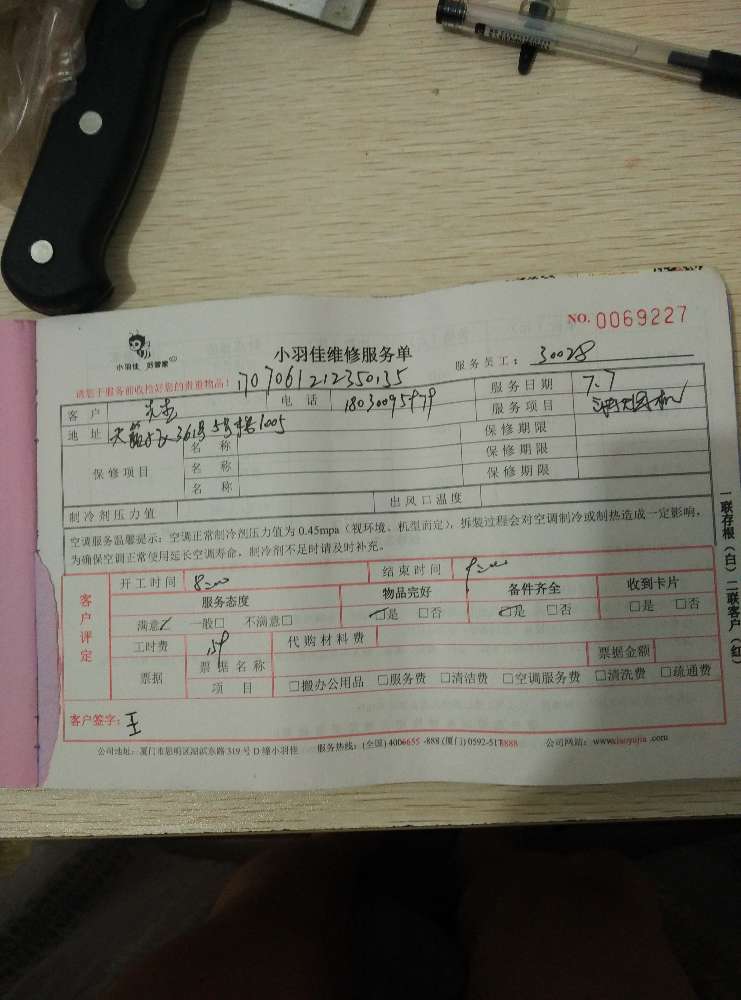 NO. 0069227
小羽佳 好管家
小羽佳维修服务单
服务员工： 30028
请您于服务前收检好您的贵重物品！ 1707061212350135
客 户 电 话 服务日期 7.7
地 址 361号5号楼1005 服务项目
保修项目 名 称 保修期限
名 称 保修期限
名 称 保修期限
制冷剂压力值 出风口温度
空调服务温馨提示：空调正常制冷剂压力值为 0.45mpa（视环境、机型而定），拆装过程会对空调制冷或制热造成一定影响，
为确保空调正常使用延长空调寿命，制冷剂不足时请及时补充。
客户评定
开工时间 8:00 结束时间 9:00
服务态度 物品完好 备件齐全 收到卡片
满意 一般□ 不满意□ □是 □否 □是 □否 □是 □否
工时费 代购材料费
票据 票据名称 票据金额
项 目 □搬办公用品 □服务费 □清洁费 □空调服务费 □清洗费 □疏通费
客户签字： 王
公司地址：厦门市思明区湖滨东路 319 号 D 幢小羽佳 服务热线：(全国) 4006655-888 (厦门) 0592-5178888 公司网站：www.xiaoyujia.com
一联存根（白）二联客户（红）